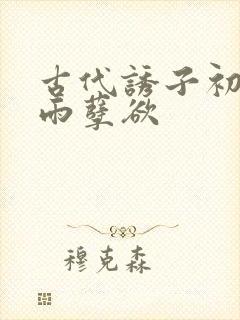 古代誘子初
雨孽欲
穆克森